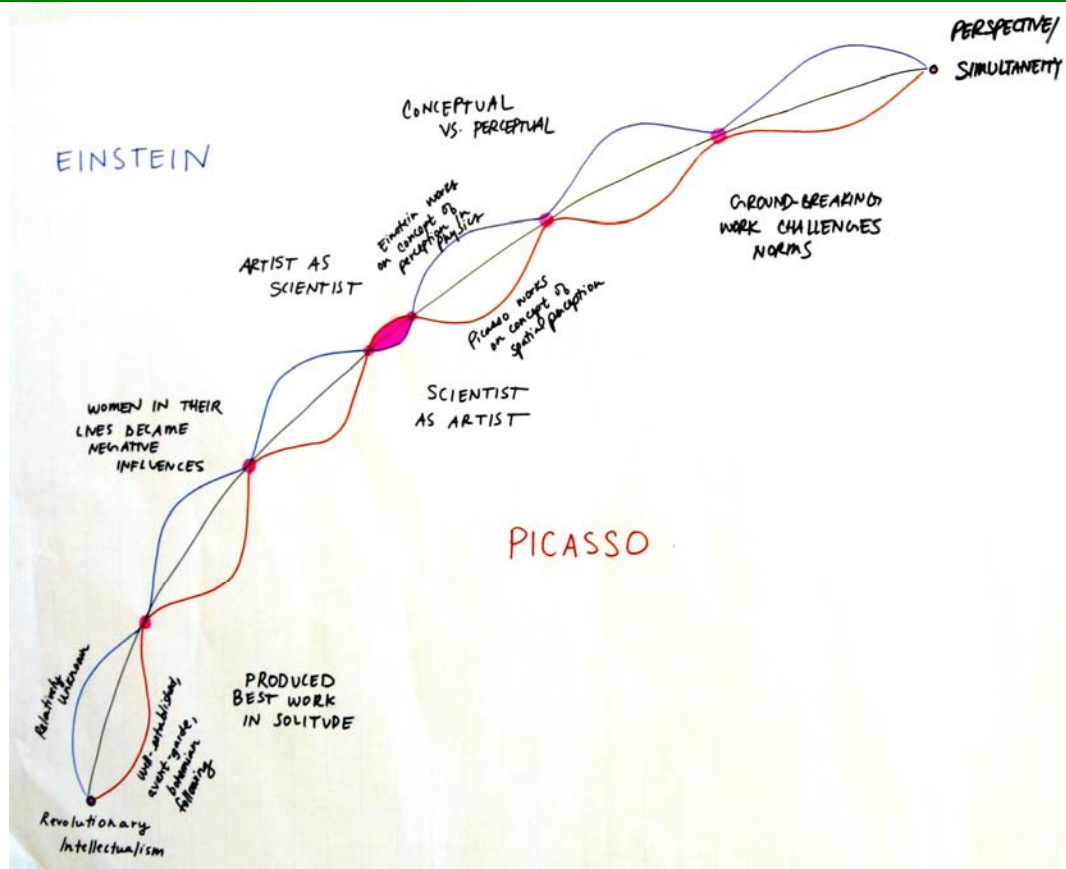 PERSPECTIVE/
SIMULTANEITY
CONCEPTUAL
VS. PERCEPTUAL
EINSTEIN
GROUND-BREAKING
WORK CHALLENGES
NORMS
Einstein works
on concept of
perception in
physics
ARTIST AS
SCIENTIST
Picasso works
on concept of
spatial perception
SCIENTIST
AS ARTIST
WOMEN IN THEIR
LIVES BECAME
NEGATIVE
INFLUENCES
PICASSO
Relatively
unknown
well-established,
avant-garde,
bohemian
following
PRODUCED
BEST WORK
IN SOLITUDE
Revolutionary
Intellectualism